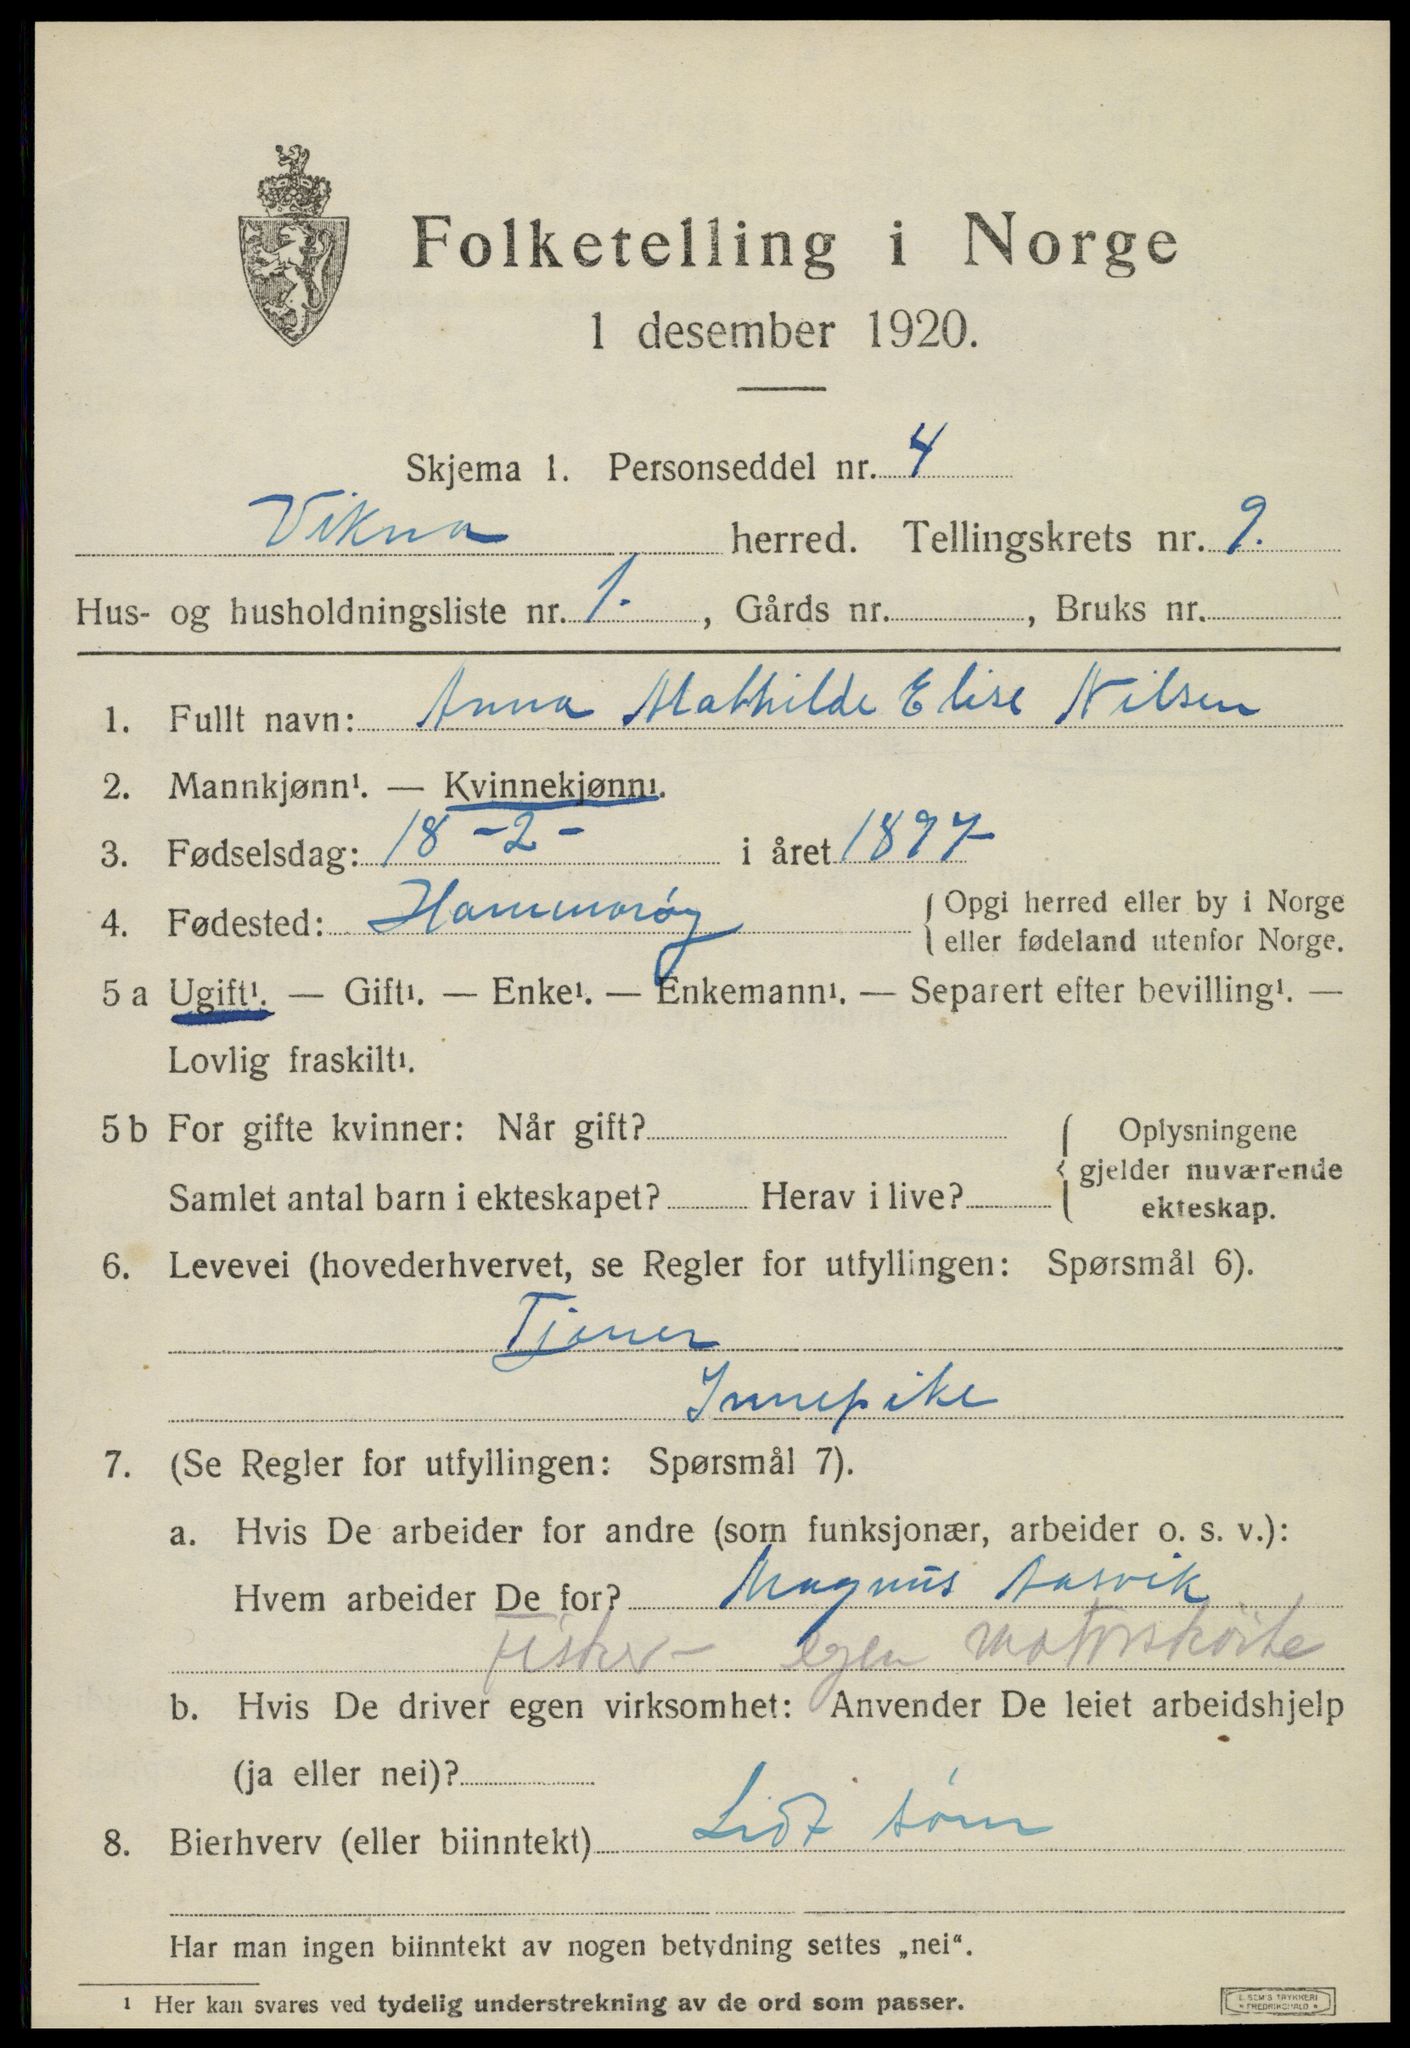 Folketelling i Norge
1 desember 1920.
Skjema 1. Personseddel nr. 4
Vikna herred. Tellingskrets nr. 9.
Hus- og husholdningsliste nr. 1. , Gårds nr. , Bruks nr.
1. Fullt navn: Anna Mathilde Elise Nilsen
2. Mannkjønn¹. — Kvinnekjønn¹.
3. Fødselsdag: 18 - 2 - i året 1897
4. Fødested: Hammarøy { Opgi herred eller by i Norge
eller fødeland utenfor Norge.
5 a Ugift¹. — Gift¹. — Enke¹. — Enkemann¹. — Separert efter bevilling¹. —
Lovlig fraskilt¹.
5 b For gifte kvinner: Når gift? { Oplysningene
gjelder nuværende
Samlet antal barn i ekteskapet? Herav i live?
ekteskap.
6. Levevei (hovederhvervet, se Regler for utfyllingen: Spørsmål 6).
Tjener
Innepike
7. (Se Regler for utfyllingen: Spørsmål 7).
a. Hvis De arbeider for andre (som funksjonær, arbeider o. s. v.):
Hvem arbeider De for? Magnus Aasvik
Fisker - egen motorskøite
b. Hvis De driver egen virksomhet: Anvender De leiet arbeidshjelp
(ja eller nei)?
8. Bierhverv (eller biinntekt) Lidt søm
Har man ingen biinntekt av nogen betydning settes „nei“.
¹ Her kan svares ved tydelig understrekning av de ord som passer.
E. SEM'S TRYKKERI
* FREDRIKSHALD *